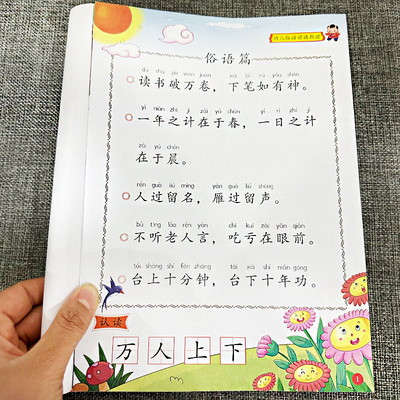 俗语篇
dú shū pò wàn juàn xià bǐ rú yǒu shén
读书破万卷，下笔如有神。
yì nián zhī jì zài yú chūn yí rì zhī jì
一年之计在于春，一日之计
zài yú chén
在于晨。
rén guò liú míng yàn guò liú shēng
人过留名，雁过留声。
bù tīng lǎo rén yán chī kuī zài yǎn qián
不听老人言，吃亏在眼前。
tái shàng shí fēn zhōng tái xià shí nián gōng
台上十分钟，台下十年功。
认读
万人上下
1